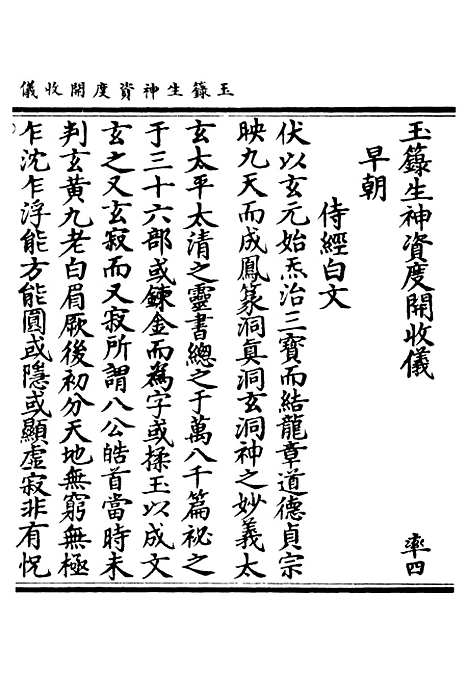 玉籙生神資度開收儀
玉籙生神資度開收儀 率四
早朝
侍經白文
伏以玄元始炁治三寶而結龍章道德貞宗
映九天而成鳳篆洞眞洞玄洞神之妙義太
玄太平太清之靈書總之于萬八千篇祕之
于三十六部或鍊金而為字或揉玉以成文
玄之又玄寂而又寂所謂八公皓首當時未
判玄黃九老白眉厥後初分天地無窮無極
乍沈乍浮能方能圓或隱或顯虛寂非有怳